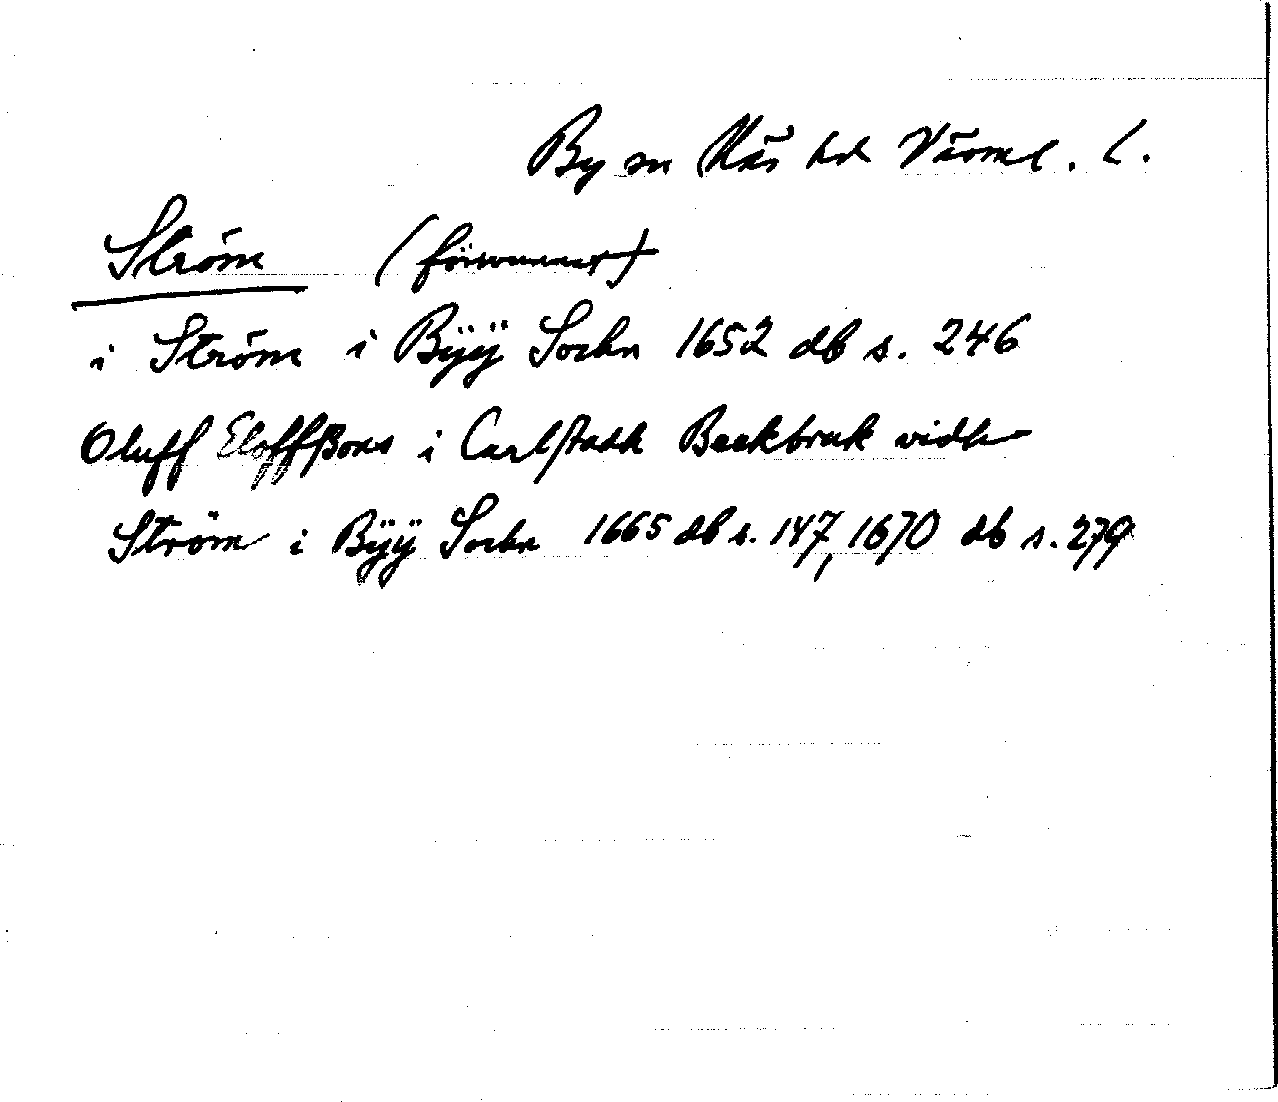 By sn Näs hd Värml. l.
Ström (försvunnet)
i Ström i Bÿÿ Sochn 1652 db s. 246
Oluff Eloffßons i Carlstadh Beckbruk widh
Ström i Bÿÿ Sochn 1665 db s. 147, 1670 db s. 279